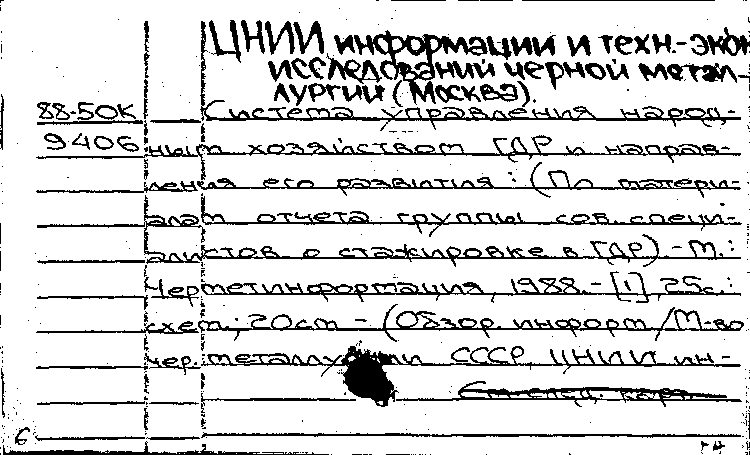 ЦНИИ информации и техн.-экон
исследований черной метал-
лургии (Москва).
88-50К Система управления народ-
9406 ным хозяйством ГДР и направ-
ления его развития: (По матери-
алам отчета группы сов. специ-
алистов о стажировке в ГДР). - М.:
Черметинформация, 1988. - [1], 25с.:
схем.; 20см - (Обзор. информ / М-во
чер. металлургии СССР, ЦНИИ ин-
См след. карт
6